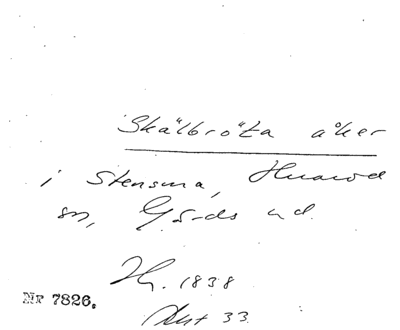 Skälbröta åker
i Stensma, Huaröd
sn, Gärds hd.
1838
Akt 33
Nr 7826.